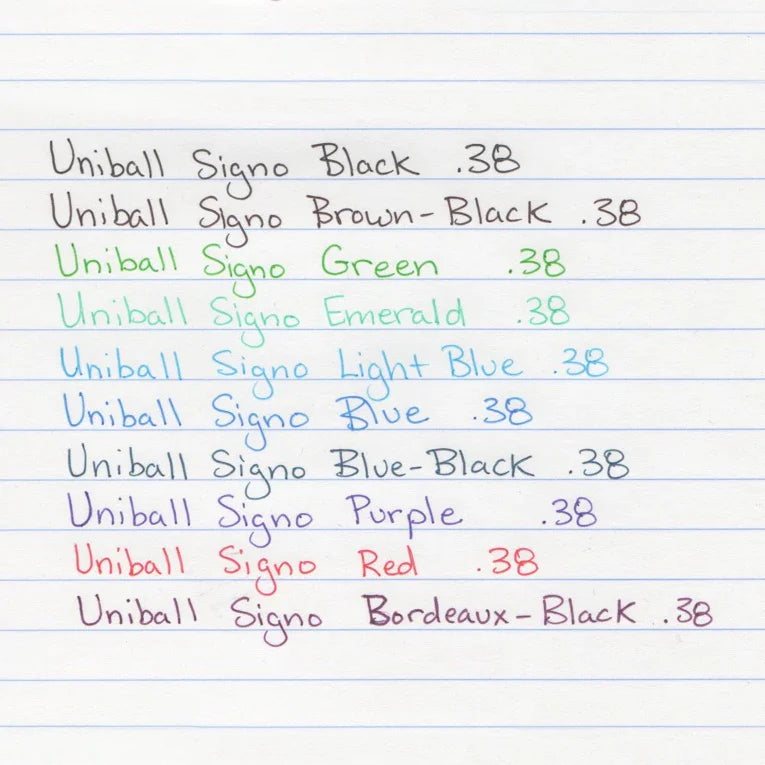 Uniball Signo Black .38
Uniball Signo Brown-Black .38
Uniball Signo Green .38
Uniball Signo Emerald .38
Uniball Signo Light Blue .38
Uniball Signo Blue .38
Uniball Signo Blue-Black .38
Uniball Signo Purple .38
Uniball Signo Red .38
Uniball Signo Bordeaux-Black .38